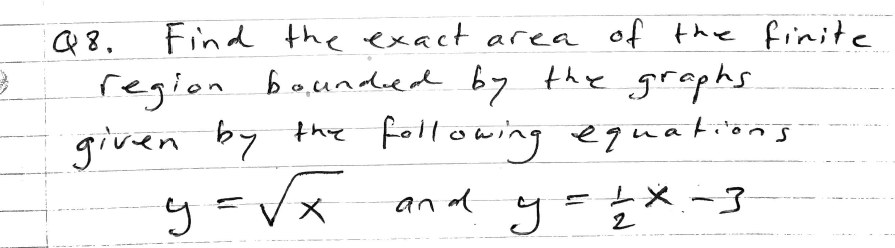 Q8. Find the exact area of the finite
region bounded by the graphs
given by the following equations
y = √x and y = ½x - 3